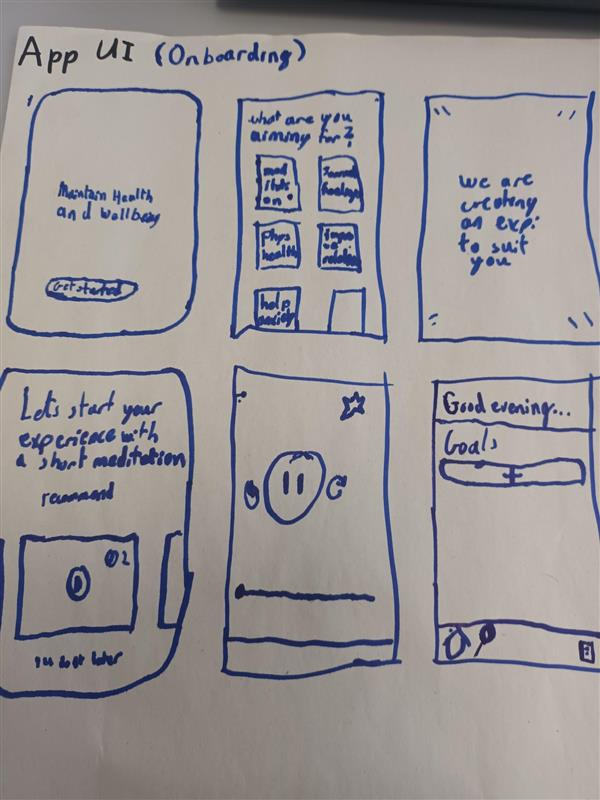 App UI (Onboarding)
Maintain Health
and Wellbeing
Get started
what are you
aiming for?
Phys
health
help
anxiety
we are
creating
an exp:
to suit
you
Let's start your
experience with
a short meditation
recommend
2
I'll do it later
Good evening...
Goals
+